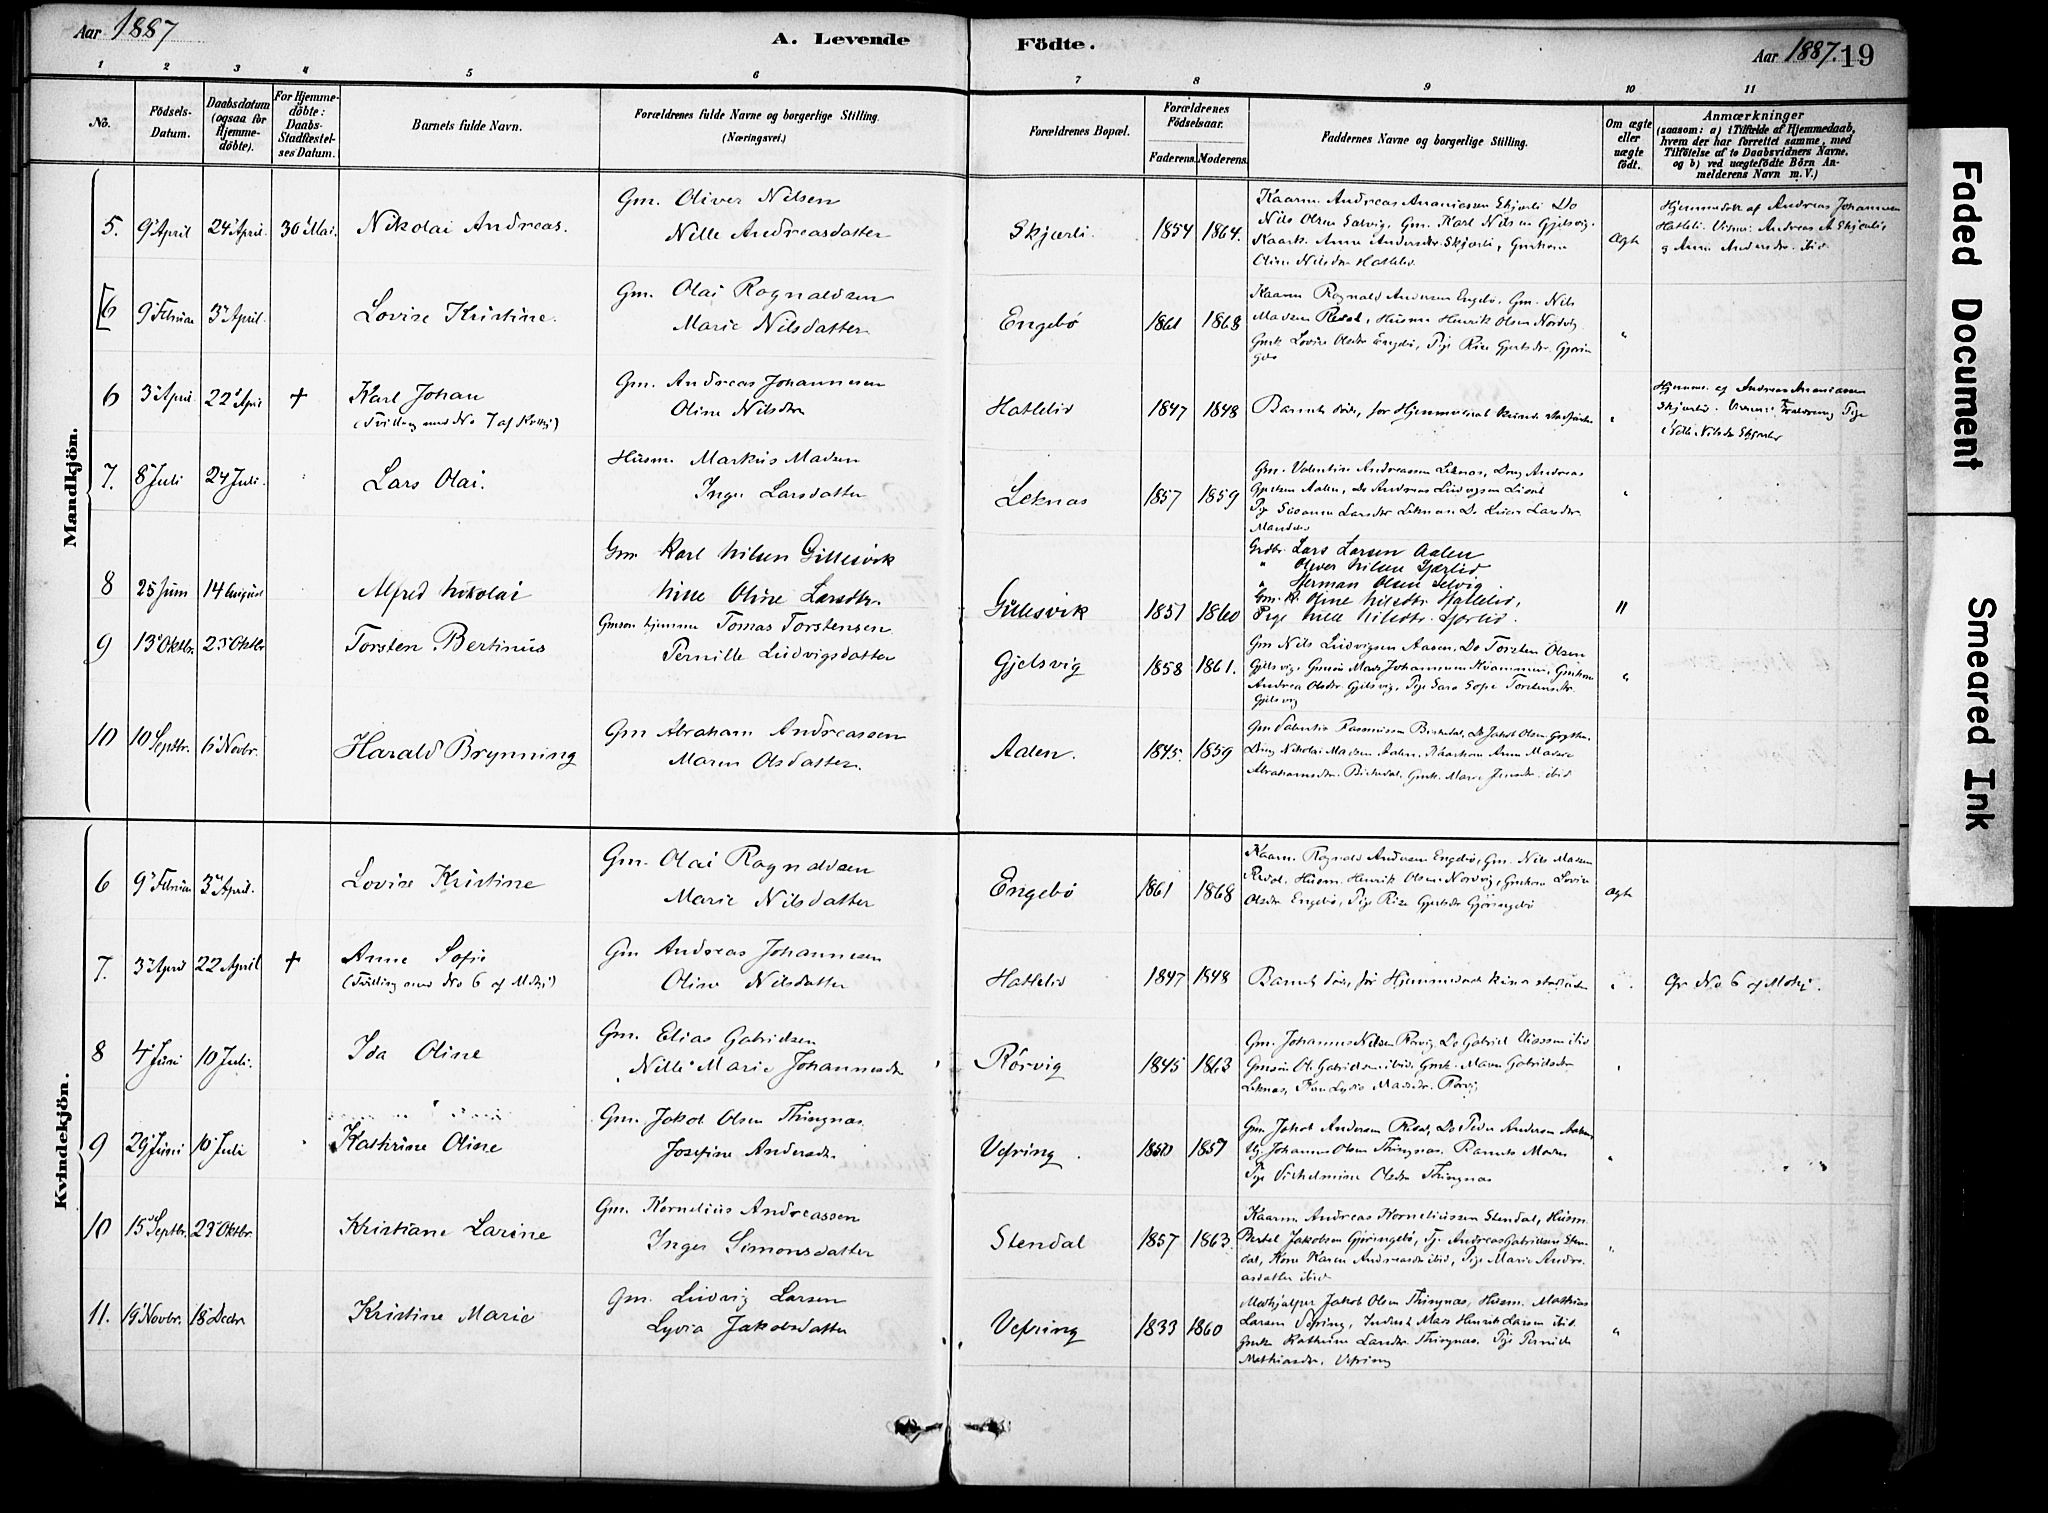 Aar 1887
A. Levende Födte.
Aar 1887. 19
1 2 3 4 5 6 7 8 9 10 11
No.
Födsels-Datum.
Daabsdatum (ogsaa for Hjemme-döbte).
For Hjemme-döbte: Daabs-Stadfæstel-ses Datum.
Barnets fulde Navn.
Forældrenes fulde Navne og borgerlige Stilling. (Næringsvei.)
Forældrenes Bopæl.
Forældrenes Födselsaar.
Faderens. Moderens.
Faddernes Navne og borgerlige Stilling.
Om ægte eller uægte födt.
Anmærkninger
(saasom: a) i Tilfælde af Hjemmedaab,
hvem der har forrettet samme, med
Tilföielse af to Daabsvidners Navne,
og b) ved uægtefödte Börn An-
melderens Navn m. V.)
Mandkjön.
5. 9 April 24 April. 30 Mai. Nikolai Andreas.
Gm. Oliver Nilsen
Nille Andreasdatter
Skjærli. 1854 1864.
Kaarm. Andreas Ananiassen Skjerli Do
Nils Olsen Sælvig, Gm. Karl Nilsen Gjelsvig.
Kaark. Anne Andersdr Skjærli, Gmkone
Oline Nilsdr Hatlelid
Ægte
Hjemmedøbt af Andreas Johannesen
Hatleli. Andreas A Skjerli,
og Anne Andersdr. ibid
[6 9 Februar 3 April. Lovise Kristine.
Gm. Olai Rognaldsen
Marie Nilsdatter
Engebö 1861 1868
Kaarm Rognald Andersen Engebö. Gm. Nils
Madsen Redal, Husm Henrik Olsen Nordvig
Gmk Lovise Olsdr Engebö, Pige Rise Gjertsdr. Gjørin
gebö
"
6 3 April 22 April † Karl Johan
(Tvilling med No 7 af Kvkj)
Gm. Andreas Johannesen
Oline Nilsdtr
Hatlelid 1847 1848
Barnet døde, før Hjemmedaab kunde stadfæstes
"
Hjemme. af Andreas Ananiassen
Skjerli. Pige
Nille Nilsdr Skjerli
7. 8 Juli 24 Juli. Lars Olai.
Husm. Markus Madsen
Inger Larsdatter
Leknas 1857 1859
Gm. Valentin Andreassen Leknas, Ung Andreas
Gjertsen Aalen, do Andreas Ludvigsen
Pige Susanne Larsdtr Leknas Do Larsdtr.
"
8 25 Juni 14 August Alfred Nikolai
Gm. Karl Nilsen Gillesvik
Nille Oline Larsdtr.
Gillesvik 1851 1860
Grdbr. Lars Larsen Aalen
" Oliver Nilsen Sjærlid
" Herman Olsen Selvig.
Gm. K. Oline Nilsdtr. Hatlelid,
Pige Nille Nilsdtr. Sjærlid.
"
9 13 Oktbr. 23 Oktbr Torsten Bertinus
Gmsön hjemme Tomas Torstensen
Pernille Ludvigsdatter
Gjelsvig 1858 1861.
Gm Nils Ludvigsen Aasen, Do Torsten Olsen
Gjelsvig, Gmsön Mads Johannesen Kvammen, Gmkone
Andrea Olsdtr. Gjelsvig, Pige Sara Sofie Torstensdtr.
Gjelsvig
"
10 10 Septbr. 6 Novbr. Harald Brynning
Gm Abraham Andreassen
Maren Olsdatter.
Aalen. 1845. 1859
Gm Valentin Rasmussen Birkedal, Do Jakob Olsen
Ung Nikolai Madsen Aalen, Kaarkone Anne Madsdr
Abrahamsdr. Birkedal, Gmk. Maren Jensdr. ibid
Kvindekjön.
6 9 Februar 3 April. Lovise Kristine
Gm. Olai Rognaldsen
Marie Nilsdatter
Engebö 1861 1868
Kaarm. Rognald Andersen Engebö, Gm. Nils Madsen
Redal. Husm. Henrik Olsen Nordvig, Gmkone Lovise
Olsdtr Engebö, Pige Rise Gjertsdr Gjøringebö
Ægte
7. 3 April 22 April † Anne Sofie
(Tvilling med No 6 af Mdkj)
Gm Andreas Johannesen
Oline Nilsdatter
Hatlelid 1847 1848
Barnet døde, før Hjemmedaab kunde stadfæstes
"
Cfr No 6 af Mdkj.
8 4 Juni 10 Juli. Ida Oline
Gm. Elias Gabrielsen
Nille Marie Johannesdr
Rörvig 1845 1863
Gm. Johannes Nilsen Rørvig Do Gabriel Eliassen ibid
Gmsön Ole Gabrielsen ibid. Gmk. Maren Gabrielsdr
Leknas, Kone Lydia Madsdr. Rørvig
9 29 Juni 10 Juli Kathrine Oline
Gm. Jakob Olsen Thingnas
Josefine Andersdr.
Vefring. 1850 1857
Gm Jakob Andersen Redal, Do Peder Andersen Aalen
Ug. Johannes Olsen Thingnas. Barnets Moder
Pige Vilhelmine Olsdtr Thingnas
"
10 15 Septbr. 23 Oktbr. Kristiane Larine
Gm. Kornelius Andreassen
Inger Simonsdatter
Stendal 1857 1863
Kaarm. Andreas Korneliussen Stendal, Husm.
Bertel Jakobsen Gjøringebö, Andreas Gabrielsen Sten-
dal, Kone Karen Andreasdr ibid, Pige Marie Andre-
asdatter ibid
"
11. 19 Novbr. 18 Decbr Kristine Marie
Gm. Ludvig Larsen
Lydia Jakobsdatter
Vefring 1833 1860
Medhjælper Jakob Olsen Thingnas, Husm. Mathias
Larsen Vefring, Inderst Mads Henrik Larsen ibid.
Gmk Kathrine Larsdr. Thingnas. Pige Pernille
Mathiasdr. Vefring
"
Faded Document
Smeared Ink